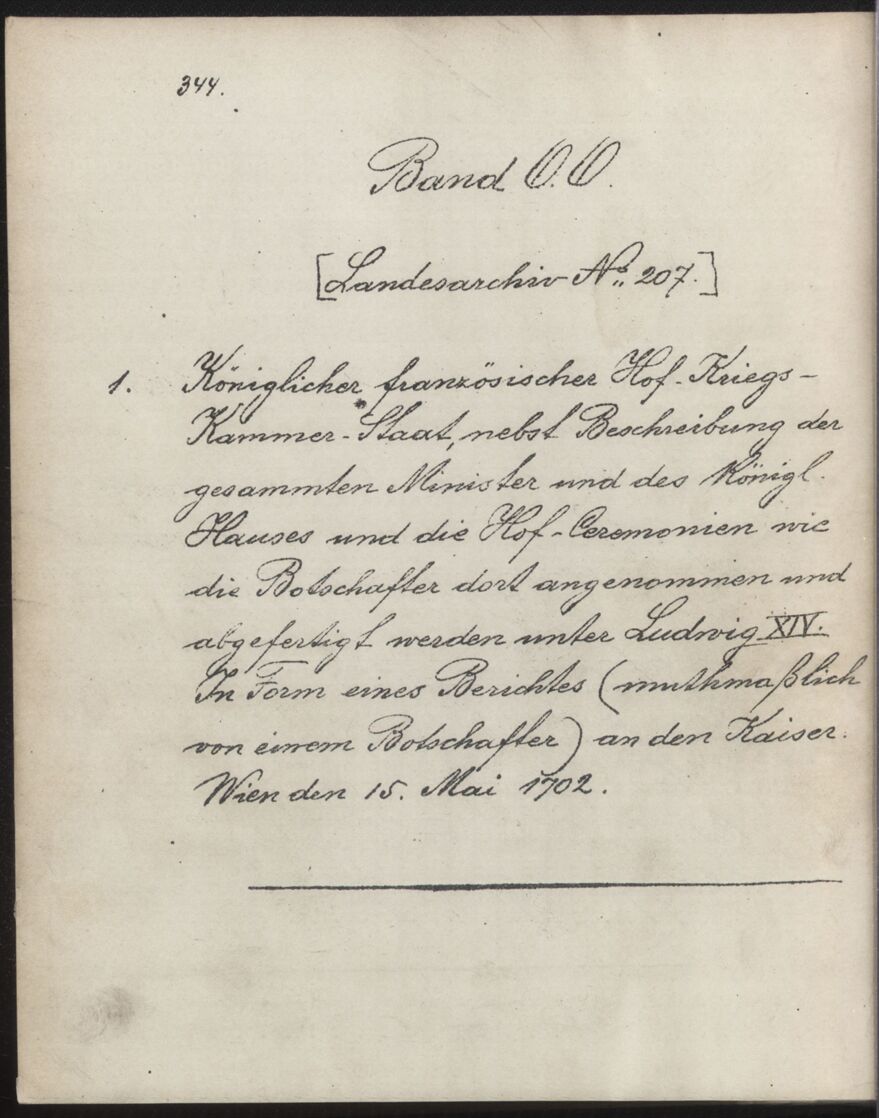 344.
Band O.O.
[Landesarchiv No. 207.]
1. Königlicher französischer Hof-Kriegs-
Kammer-Staat, nebst Beschreibung der
gesammten Minister und des Königl.
Hauses und die Hof-Ceremonien wie
die Botschafter dort angenommen und
abgefertigt werden unter Ludwig XIV.
In Form eines Berichtes (muthmaßlich
von einem Botschafter) an den Kaiser.
Wien den 15. Mai 1702.